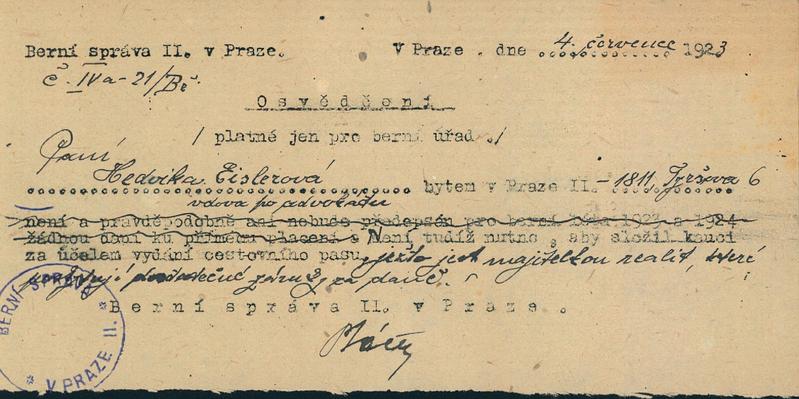 Berní správa II. v Praze.
V Praze . dne 4. červenec 1923
č. IVa-21/Bč.
Osvědčení
/ platné jen pro berní úřad ./
Paní
Hedvika Eislerová bytem v Praze II.-1811 Tyršova 6
vdova po advokátu
není a pravděpodobně asi nebude předepsán pro berní léta 1923 a 1924
žádnou daní ku přímému placení s Není tudíž nutno, aby složil kauci
za účelem vydání cestovního pasu, ježto jest majitelkou realit, které
poskytují dostatečné záruky za daně.
Berní správa II. v Praze.
BERNÍ SPRÁVA
* V PRAZE II. *